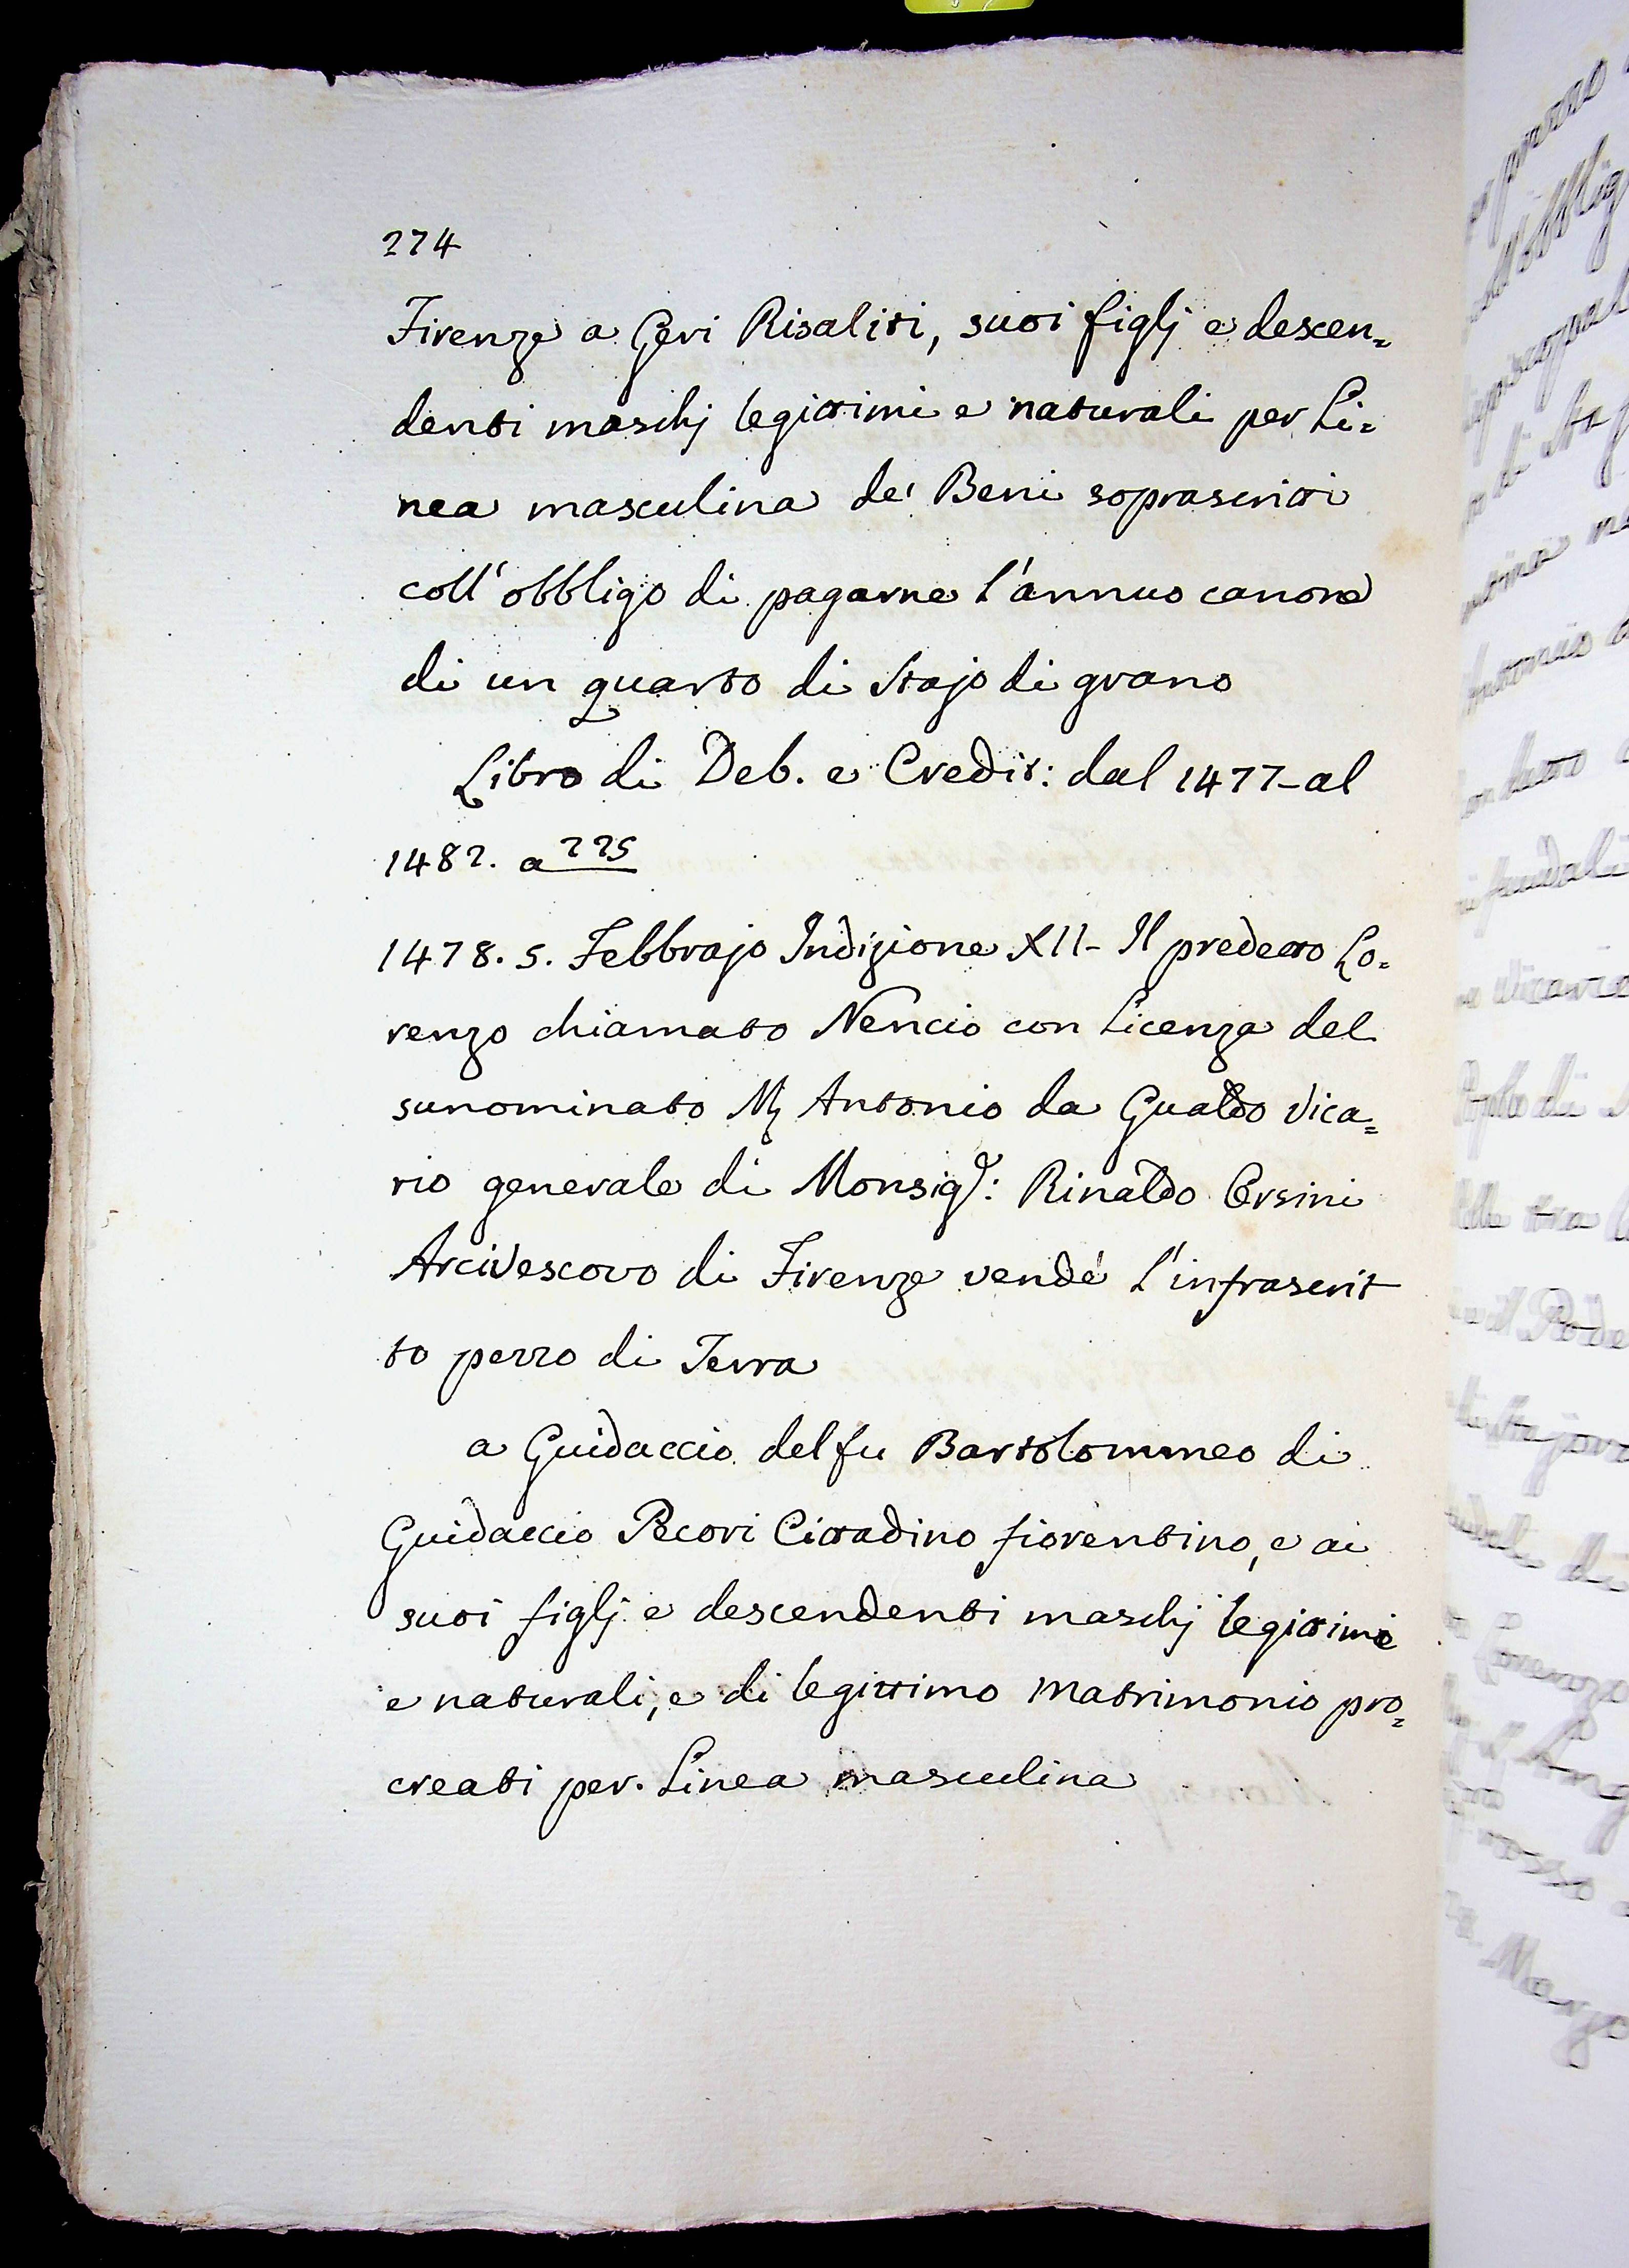 274
Firenze a Geri Risaliti, suoi figlj e descen=
denti maschj legittimi e naturali per Li=
nea masculina de' Beni soprascritti
coll'obbligo di pagarne l'annuo canone
di un quarto di Stajo di grano
Libro di Deb. e Credit: dal 1477-al
1482. a 225
1478. 5. Febbrajo Indizione XII- Il predetto Lo=
renzo chiamato Nencio con Licenza del
sunominato Mͬ Antonio da Gualdo Vica=
rio generale di Monsigͬ: Rinaldo Orsini
Arcivescovo di Firenze vendé l'infrascrit
to pezzo di Terra
a Guidaccio del fu Bartolommeo di
Guidaccio Pecori Cittadino fiorentino, e ai
suoi figlj e descendenti maschj legittimi
e naturali, e di legittimo matrimonio pro=
creati per Linea masculina